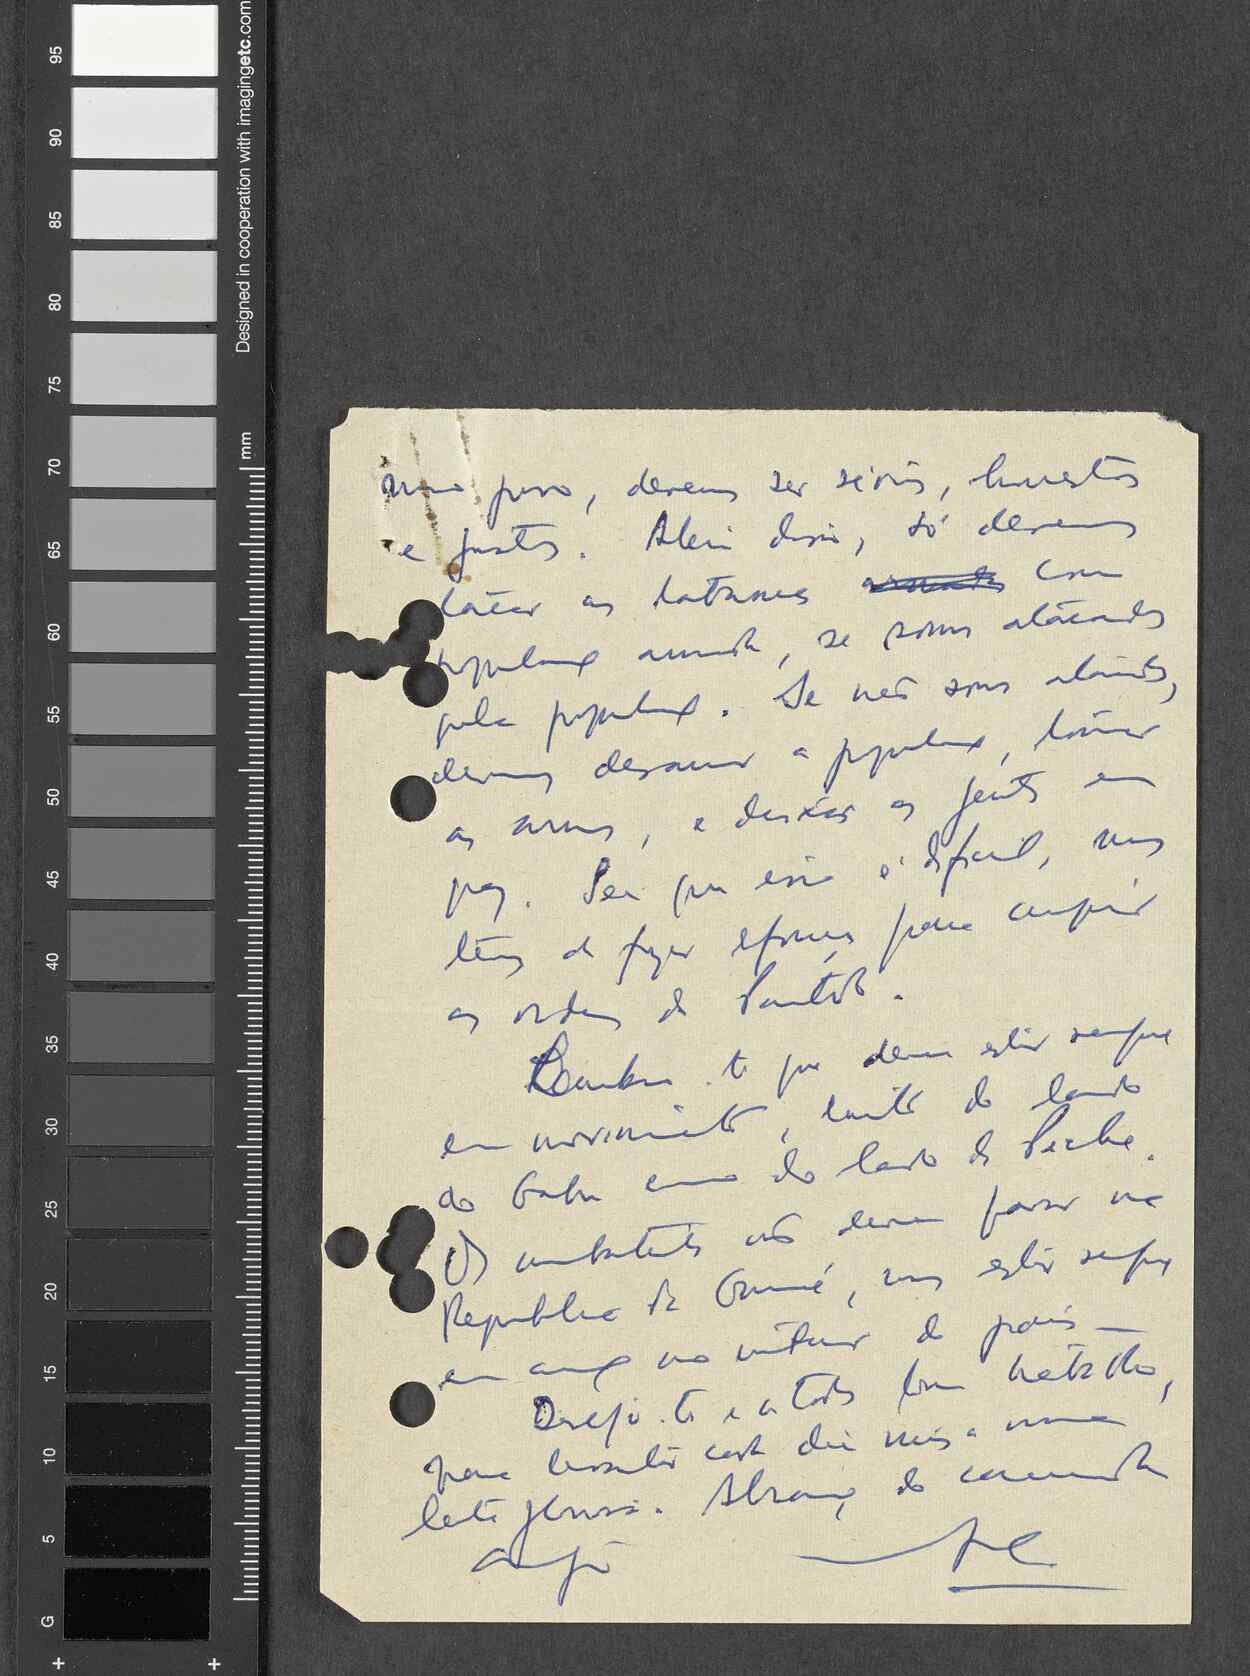 95
90
85
80
75
70
65
60
55
50
45
40
35
30
25
20
15
10
5
G
Designed in cooperation with imagingetc.com
mm
povo, devemos ser sérios, honestos
e justos. Além disso, só devemos
as tabancas com
população armada, se somos atacados
pela população. Se não somos atacados,
devemos desarmar a população, tomar
as armas, e deixar as gentes em
paz. Sei que isso é difícil, mas
temos de fazer esforços para cumprir
as ordens do Partido.
Lembro-te que devem estar sempre
em movimento, tanto do lado
do Gabu como do lado de
Os combatentes não devem parar na
República da Guiné, mas estar sempre
em acção no interior do país —
Desejo-te e a todos bom trabalho,
para cada dia mais a nossa
luta gloriosa. Abraço do camarada
amigo